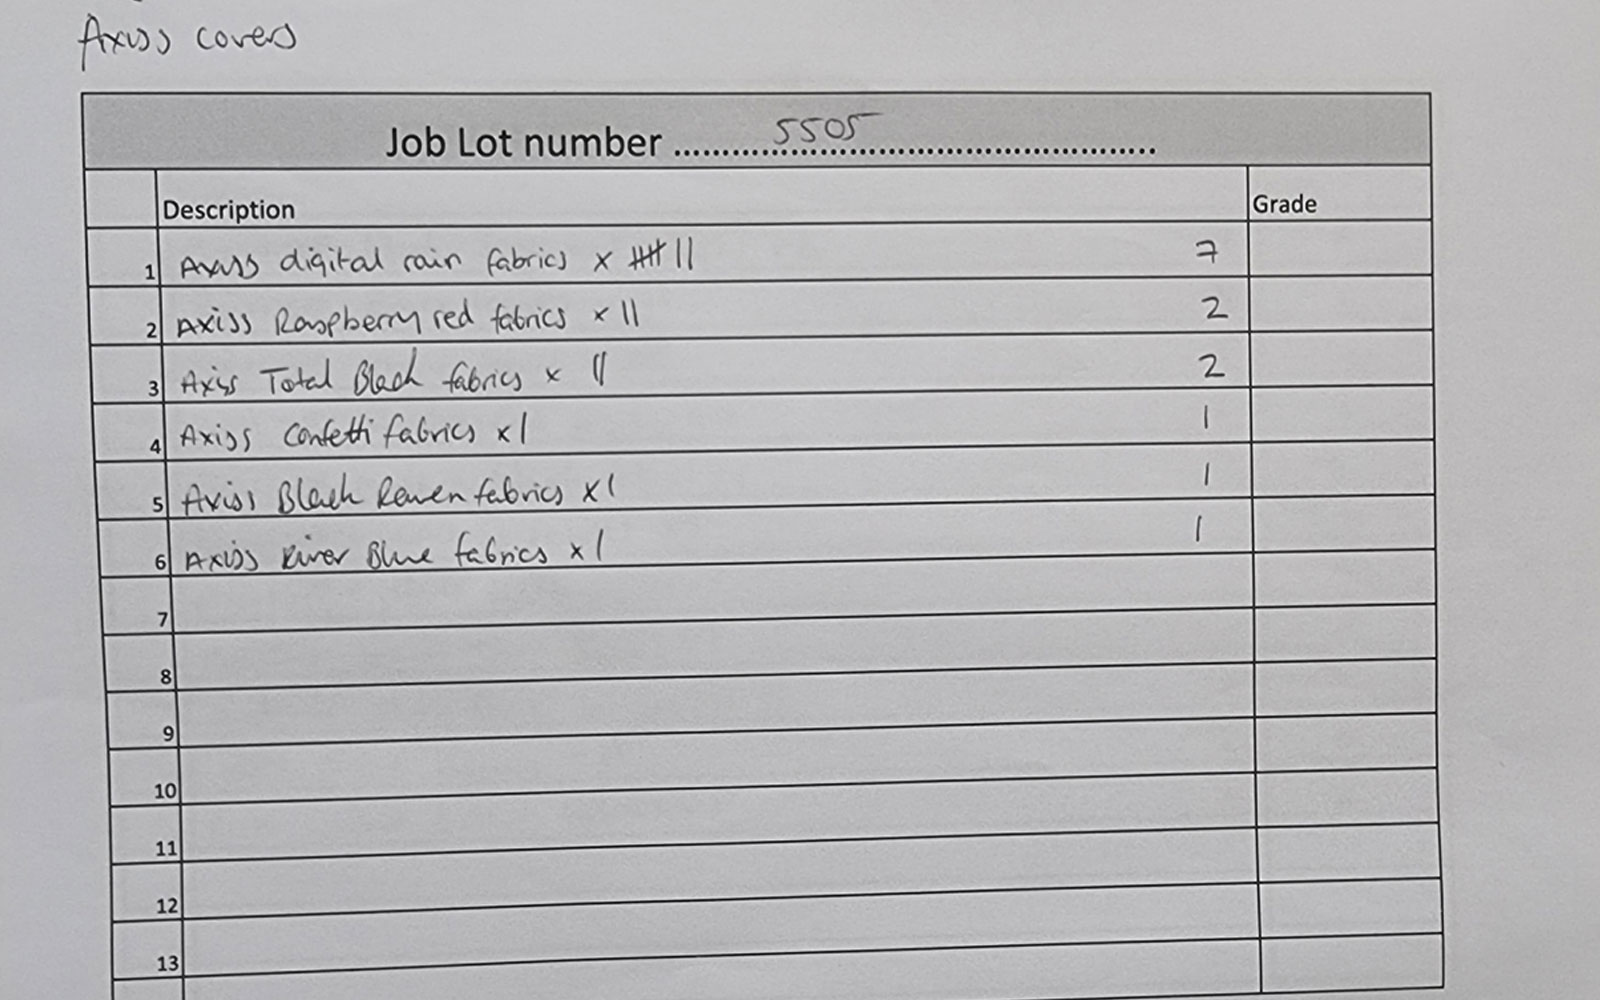 Axiss covers
Job Lot number .................................................. 5505
Description Grade
1 Axiss digital rain fabrics x 卌 || 7
2 Axiss Raspberry red fabrics x || 2
3 Axiss Total Black fabrics x || 2
4 Axiss Confetti fabrics x | 1
5 Axiss Black Raven fabrics x | 1
6 Axiss River Blue fabrics x | 1
7
8
9
10
11
12
13